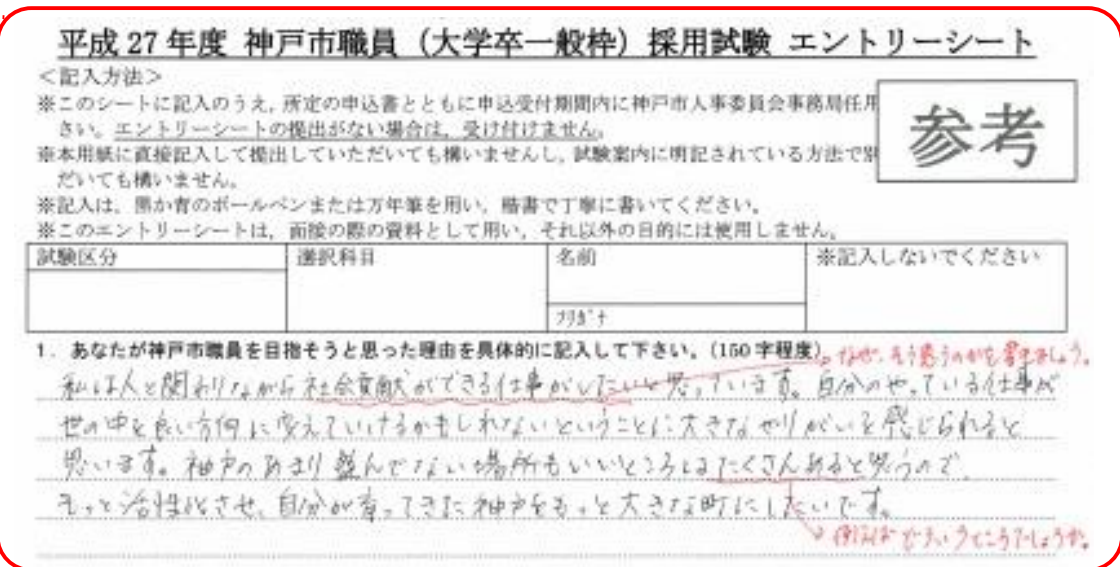 平成 27 年度 神戸市職員（大学卒一般枠）採用試験 エントリーシート
＜記入方法＞
※このシートに記入のうえ，所定の申込書とともに申込受付期間内に神戸市人事委員会事務局任用
さい。エントリーシートの提出がない場合は，受け付けません。
※本用紙に直接記入して提出していただいても構いませんし，試験案内に明記されている方法で別
だいても構いません。
※記入は，黒か青のボールペンまたは万年筆を用い，楷書で丁寧に書いてください。
※このエントリーシートは，面接の際の資料として用い，それ以外の目的には使用しません。
参考
試験区分 選択科目 名前 ※記入しないでください
フリガナ
1． あなたが神戸市職員を目指そうと思った理由を具体的に記入して下さい。（150 字程度）
なぜ、そう思うのかを書きましょう。
私は人と関わりながら社会貢献ができる仕事がしたいと思っています。自分のやっている仕事が
世の中を良い方向に変えていけるかもしれないということに大きなやりがいを感じられると
思います。神戸のあまり盛んでない場所もいいところはたくさんあると思うので、
もっと活性化させ、自分が育ってきた神戸をもっと大きな町にしたいです。
例えばどういうところでしょうか。